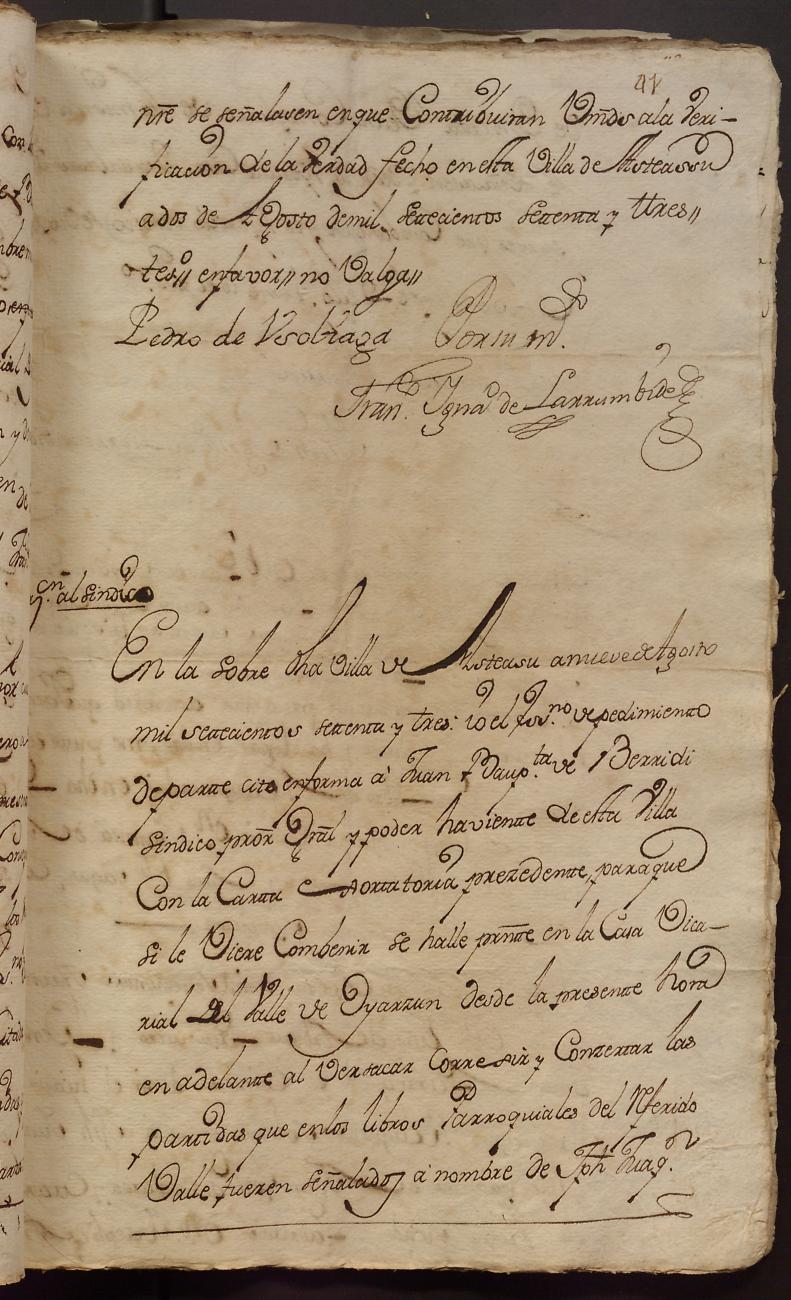 41
nr̃e se señalasen en que Contribuiran Vm̃ds a la Veri-
ficacion de la Verdad fecho en esta Villa de Asteassu
a dos de Agosto de mil setecientos settenta y ttres//
tes.º// en favor// no Valga//
Pedro de Vsobiaga Por su md.
Fran.co Igna.º de Larrumbide
cn. al sindico
En la sobre dha Villa de Asteasu a nueve de Agosto
mil setecientos settenta y tres: io el Ess.no de pedimiento
de parte cite en forma a Juan Baup.ta de Berridi
sindico pror̃ Gral y poder haviente de esta Villa
Con la Carta exortatoria prezedente, para que
si le Viere Combenir se halle prnte en la Casa Vica-
rial del Valle de Oyarzun desde la presente hora
en adelante al Ver sacar Correjir y Conzertar las
partidas que en los libros Parroquiales del Referido
Valle fueren señalados a nombre de Jph Juaq.n